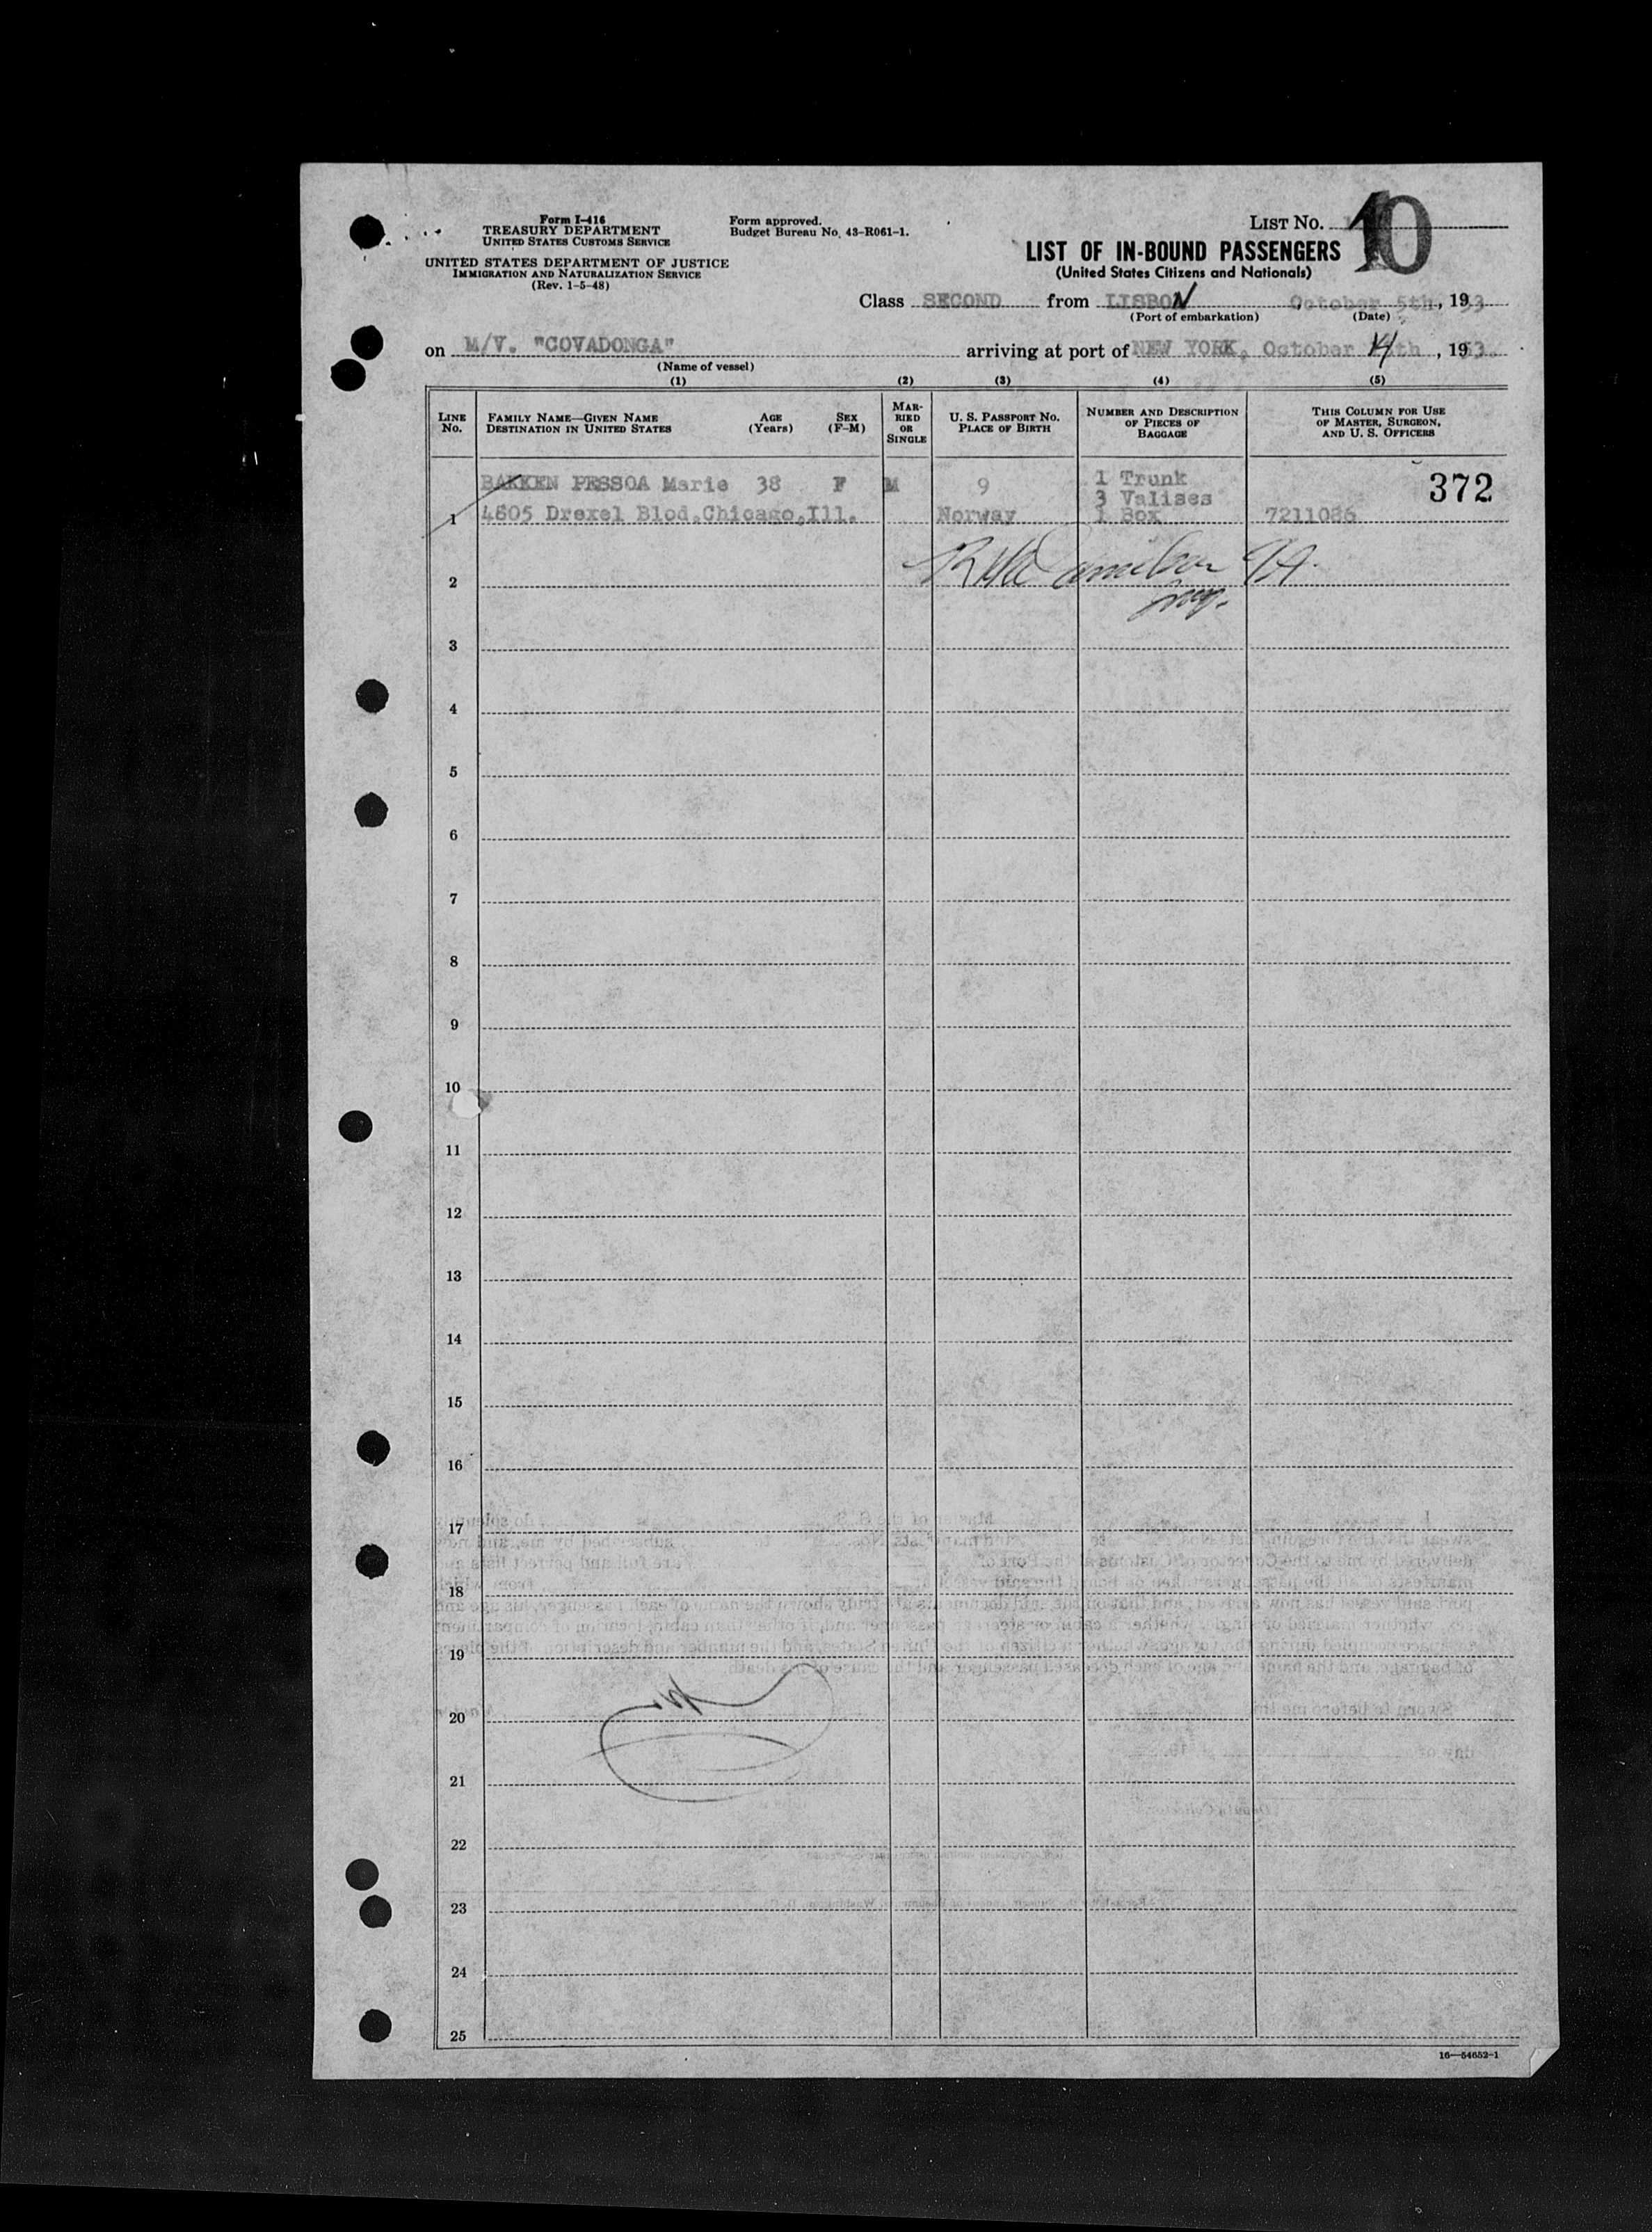 Form I-416
TREASURY DEPARTMENT
UNITED STATES CUSTOMS SERVICE
UNITED STATES DEPARTMENT OF JUSTICE
IMMIGRATION AND NATURALIZATION SERVICE
(Rev. 1-5-48)
Form approved.
Budget Bureau No. 43-R061-1.
LIST NO. 10
LIST OF IN-BOUND PASSENGERS
(United States Citizens and Nationals)
Class SECOND from LISBON, October 5th, 1953
(Port of embarkation) (Date)
on M/V. "COVADONGA" arriving at port of NEW YORK, October 14th, 1953.
(Name of vessel)
(1) (2) (3) (4) (5)
LINE No.
FAMILY NAME—GIVEN NAME
DESTINATION IN UNITED STATES
AGE (Years)
SEX (F-M)
MARRIED OR SINGLE
U. S. PASSPORT NO.
PLACE OF BIRTH
NUMBER AND DESCRIPTION
OF PIECES OF
BAGGAGE
THIS COLUMN FOR USE
OF MASTER, SURGEON,
AND U. S. OFFICERS
BAKKEN PESSOA Marie 38 F M 9 1 Trunk 372
3 Valises
1 4805 Drexel Blod.Chicago,Ill. Norway 1 Box 7211086
2
3
4
5
6
7
8
9
10
11
12
13
14
15
16
17
18
19
20
21
22
23
24
25
16—54652-1